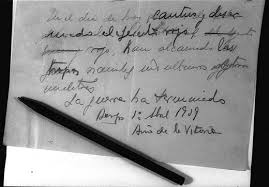 En el día de hoy, cautivo y desar-
mado el Ejército rojo,
rojo, han alcanzado las
tropas nacionales sus objetivos
militares.
La guerra ha terminado
Burgos 1º Abril 1939
Año de la Victoria